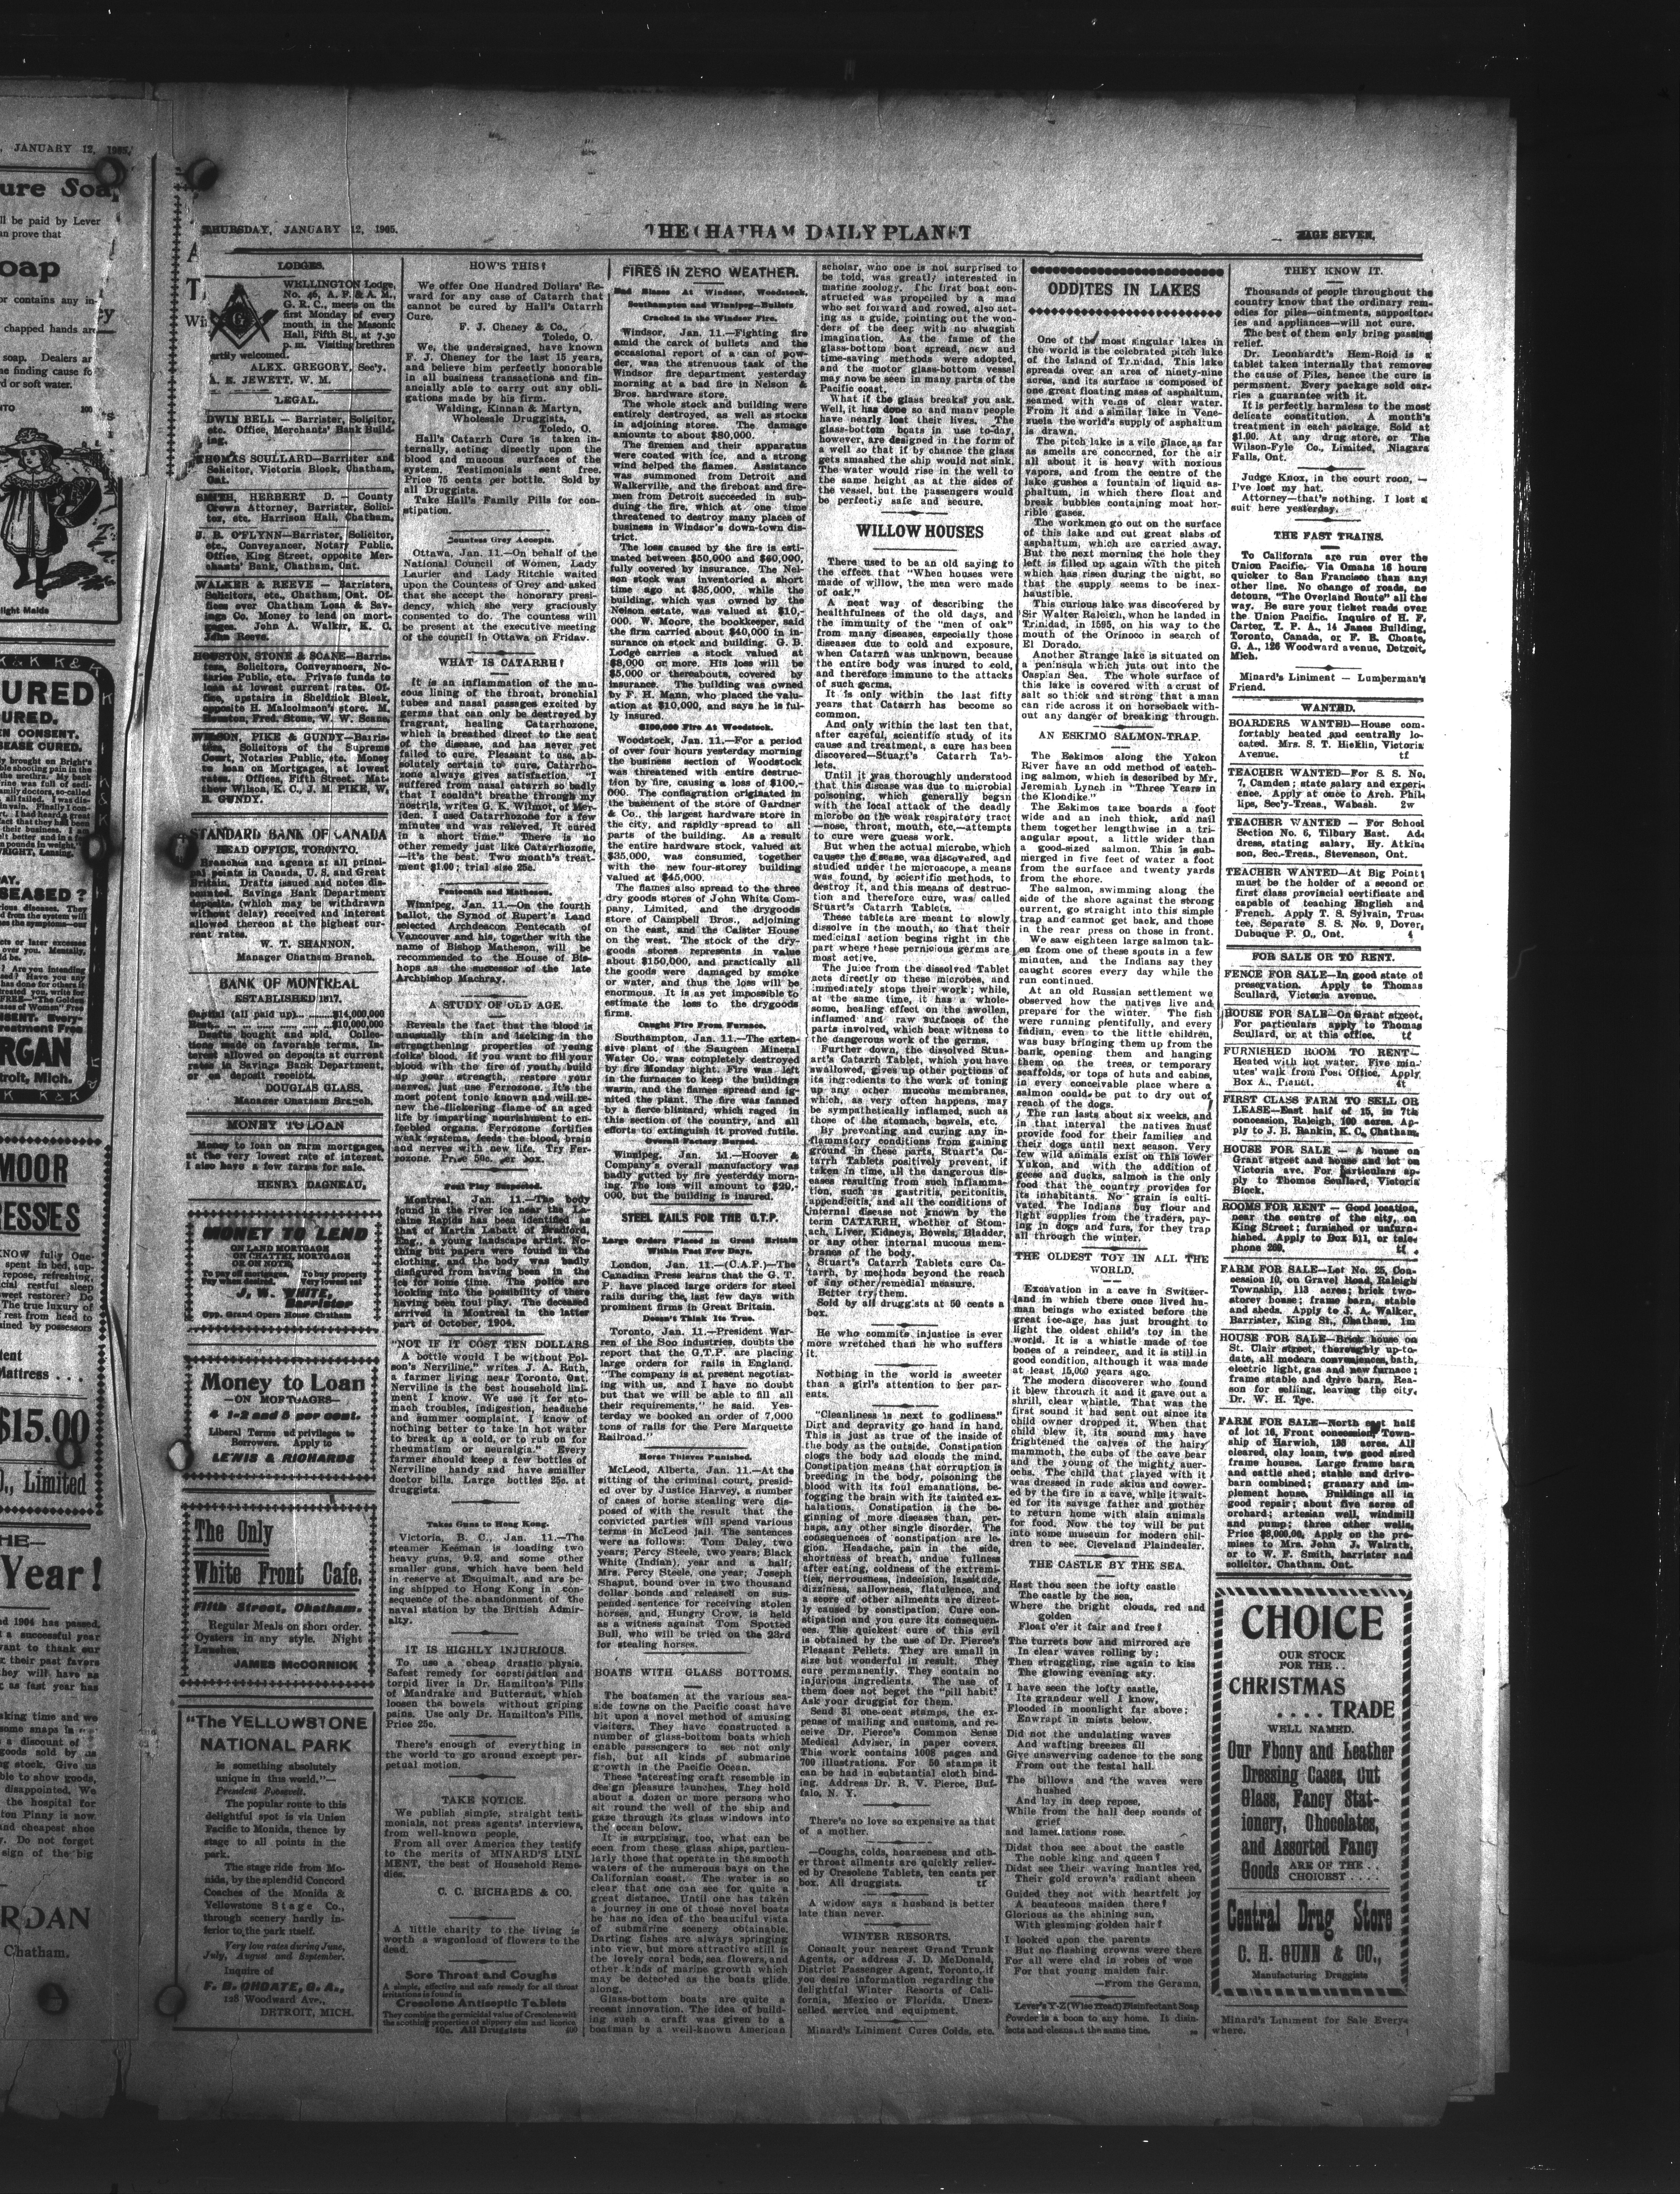 THURSDAY, JANUARY 12, 1905.
THE CHATHAM DAILY PLANET
PAGE SEVEN.
LODGES.
WELLINGTON Lodge,
No. 46, A. F. & A. M.,
G. R. C., meets on the
first Monday of every
month, in the Masonic
Hall, Fifth St., at 7.30
p. m. Visiting brethren
ALEX. GREGORY, Sec'y.
A. E. JEWETT, W. M.
LEGAL.
EDWIN BELL — Barrister, Solicitor,
etc. Office, Merchants' Bank Build-
ing.
THOMAS SCULLARD—Barrister and
Solicitor, Victoria Block, Chatham,
Ont.
SMITH, HERBERT D. — County
Crown Attorney, Barrister, Solici-
tor, etc. Harrison Hall, Chatham.
J. B. O'FLYNN—Barrister, Solicitor,
etc., Conveyancer, Notary Public.
Office, King Street, opposite Mer-
chants' Bank, Chatham, Ont.
WALKER & REEVE — Barristers,
Solicitors, etc., Chatham, Ont. Of-
fices over Chatham Loan & Sav-
ings Co. Money to lend on mort-
gages. John A. Walker, K. C.
John Reeve.
HOUSTON, STONE & SCANE—Barris-
ters, Solicitors, Conveyancers, No-
taries Public, etc. Private funds to
loan at lowest current rates. Of-
fice, upstairs in Sheldrick Block,
opposite H. Malcolmson's store. M.
Houston, Fred. Stone, W. W. Scane.
WILSON, PIKE & GUNDY—Barris-
ters, Solicitors of the Supreme
Court, Notaries Public, etc. Money
to loan on Mortgages, at lowest
rates. Offices, Fifth Street. Mat-
thew Wilson, K. C., J. M. PIKE, W.
E. GUNDY.
STANDARD BANK OF CANADA
HEAD OFFICE, TORONTO.
Branches and agents at all princi-
pal points in Canada, U. S. and Great
Britain. Drafts issued and notes dis-
counted. Savings Bank Department
deposits, (which may be withdrawn
without delay) received and interest
allowed thereon at the highest cur-
rent rates.
W. T. SHANNON,
Manager Chatham Branch.
BANK OF MONTREAL
ESTABLISHED 1817.
Capital (all paid up).....$14,000,000
Rest, ................$10,000,000
Drafts bought and sold. Collec-
tions made on favorable terms. In-
terest allowed on deposits at current
rates in Savings Bank Department,
or on deposit receipts.
DOUGLAS GLASS,
Manager Chatham Branch.
MONEY TO LOAN
Money to loan on farm mortgages,
at the very lowest rate of interest.
I also have a few farms for sale.
HENRY DAGNEAU.
MONEY TO LEND
ON LAND MORTGAGE
ON CHATTEL MORTGAGE
OR ON NOTE
To pay off mortgages. To buy property
Pay when desired. Very lowest rat
J. W. WHITE,
Barrister
Opp. Grand Opera House Chatham
Money to Loan
—ON MORTGAGES—
4 1-2 and 5 per cent.
Liberal Terms ed privileges to
Borrowers. Apply to
LEWIS & RICHARDS
The Only
White Front Cafe.
Fifth Street, Chatham.
Regular Meals on short order.
Oysters in any style. Night
Lunches.
JAMES McCORNICK
"The YELLOWSTONE
NATIONAL PARK
is something absolutely
unique in this world."—
President Roosevelt.
The popular route to this
delightful spot is via Union
Pacific to Monida, thence by
stage to all points in the
park.
The stage ride from Mo-
nida, by the splendid Concord
Coaches of the Monida &
Yellowstone Stage Co.,
through scenery hardly in-
ferior to the park itself.
Very low rates during June,
July, August and September.
Inquire of
F. B. CHOATE, G. A.,
128 Woodward Ave.,
DETROIT, MICH.
HOW'S THIS!
We offer One Hundred Dollars' Re-
ward for any case of Catarrh that
cannot be cured by Hall's Catarrh
Cure.
F. J. Cheney & Co.,
Toledo, O.
We, the undersigned, have known
F. J. Cheney for the last 15 years,
and believe him perfectly honorable
in all business transactions and fin-
ancially able to carry out any obli-
gations made by his firm.
Walding, Kinnan & Martyn,
Wholesale Druggists,
Toledo, O.
Hall's Catarrh Cure is taken in-
ternally, acting directly upon the
blood and mucous surfaces of the
system. Testimonials sent free.
Price 75 cents per bottle. Sold by
all Druggists.
Take Hall's Family Pills for con-
stipation.
Countess Grey Accepts.
Ottawa, Jan. 11.—On behalf of the
National Council of Women, Lady
Laurier and Lady Ritchie waited
upon the Countess of Grey and asked
that she accept the honorary presi-
dency, which she very graciously
consented to do. The countess will
be present at the executive meeting
of the council in Ottawa on Friday.
WHAT IS CATARRH?
It is an inflammation of the mu-
cous lining of the throat, bronchial
tubes and nasal passages excited by
germs that can only be destroyed by
fragrant, healing Catarrhozone,
which is breathed direct to the seat
of the disease, and has never yet
failed to cure. Pleasant to use, ab-
solutely certain to cure, Catarrho-
zone always gives satisfaction. "I
suffered from nasal catarrh so badly
that I couldn't breathe through my
nostrils, writes G. K. Wilmot, of Mer-
iden. I used Catarrhozone for a few
minutes and was relieved. It cured
in a short time." There is no
other remedy just like Catarrhozone,
—it's the best. Two month's treat-
ment $1.00; trial size 25c.
Pentecoth and Matheson.
Winnipeg, Jan. 11.—On the fourth
ballot, the Synod of Rupert's Land
selected Archdeacon Pentecath of
Vancouver and his, together with the
name of Bishop Matheson, will be
recommended to the House of Bis-
hops as the successor of the late
Archbishop Machray.
A STUDY OF OLD AGE.
Reveals the fact that the blood is
unusually thin and lacking in the
strengthening properties of young
folks' blood. If you want to fill your
blood with the fire of youth, build
up your strength, restore your
nerves, just use Ferrozone. It's the
most potent tonic known and will re-
new the flickering flame of an aged
life by imparting nourishment to en-
feebled organs. Ferrozone fortifies
weak systems, feeds the blood, brain
and nerves with new life. Try Fer-
rozone. Price 50c. per box.
Foul Play Suspected.
Montreal, Jan. 11.—The body
found in the river ice near the La-
chine Rapids has been identified as
that of Martin Labatt of Bradford,
Eng., a young landscape artist. No-
thing but papers were found in the
clothing, and the body was badly
disfigured from having been in the
ice for some time. The police are
looking into the possibility of there
having been foul play. The deceased
arrived in Montreal in the latter
part of October, 1904.
"NOT IF IT COST TEN DOLLARS
A bottle would I be without Pol-
son's Nerviline," writes J. A. Ruth,
a farmer living near Toronto, Ont.
Nerviline is the best household lini-
ment I know. We use it for sto-
mach troubles, indigestion, headache
and summer complaint. I know of
nothing better to take in hot water
to break up a cold, or to rub on for
rheumatism or neuralgia." Every
farmer should keep a few bottles of
Nerviline handy and have smaller
doctor bills. Large bottles 25c. at
druggists.
Takes Guns to Hong Kong.
Victoria, B. C., Jan. 11.—The
steamer Keeman is loading two
heavy guns, 9.2, and some other
smaller guns, which have been held
in reserve at Esquimalt, and are be-
ing shipped to Hong Kong in con-
sequence of the abandonment of the
naval station by the British Admir-
alty.
IT IS HIGHLY INJURIOUS.
To use a cheap drastic physic.
Safest remedy for constipation and
torpid liver is Dr. Hamilton's Pills
of Mandrake and Butternut, which
loosen the bowels without griping
pains. Use only Dr. Hamilton's Pills.
Price 25c.
There's enough of everything in
the world to go around except per-
petual motion.
TAKE NOTICE.
We publish simple, straight testi-
monials, not press agents' interviews,
from well-known people.
From all over America they testify
to the merits of MINARD'S LINI-
MENT, the best of Household Reme-
dies.
C. C. RICHARDS & CO.
A little charity to the living is
worth a wagonload of flowers to the
dead.
Sore Throat and Coughs
A simple, effective and safe remedy for all throat
irritations is found in
Cresolene Antiseptic Tablets
They combine the germicidal value of Cresolene with
the soothing properties of slippery elm and licorice.
10c. All Druggists
FIRES IN ZERO WEATHER.
Bad Blazes At Windsor, Woodstock,
Southampton and Winnipeg—Bullets
Cracked in the Windsor Fire.
Windsor, Jan. 11.—Fighting fire
amid the carck of bullets and the
occasional report of a can of pow-
der, was the strenuous task of the
Windsor fire department yesterday
morning at a bad fire in Nelson &
Bros. hardware store.
The whole stock and building were
entirely destroyed, as well as stocks
in adjoining stores. The damage
amounts to about $80,000.
The firemen and their apparatus
were coated with ice, and a strong
wind helped the flames. Assistance
was summoned from Detroit and
Walkerville, and the fireboat and fire-
men from Detroit succeeded in sub-
duing the fire, which at one time
threatened to destroy many places of
business in Windsor's down-town dis-
trict.
The loss caused by the fire is esti-
mated between $50,000 and $60,000,
fully covered by insurance. The Nel-
son stock was inventoried a short
time ago at $85,000, while the
building, which was owned by the
Nelson estate, was valued at $10,-
000. W. Moore, the bookkeeper, said
the firm carried about $40,000 in in-
surance on stock and building. G. B.
Lodge carries a stock valued at
$8,000 or more. His loss will be
$5,000 or thereabouts, covered by
insurance. The building was owned
by F. H. Mann, who placed the valu-
ation at $10,000, and says he is ful-
ly insured.
$100,000 Fire At Woodstock.
Woodstock, Jan. 11.—For a period
of over four hours yesterday morning
the business section of Woodstock
was threatened with entire destruc-
tion by fire, causing a loss of $100,-
000. The conflagration originated in
the basement of the store of Gardner
& Co., the largest hardware store in
the city, and rapidly spread to all
parts of the building. As a result
the entire hardware stock, valued at
$35,000, was consumed, together
with the new four-storey building
valued at $45,000.
The flames also spread to the three
dry goods stores of John White Com-
pany, Limited, and the drygoods
store of Campbell Bros., adjoining
on the east, and the Caister House
on the west. The stock of the dry-
goods stores represents in value
about $150,000, and practically all
the goods were damaged by smoke
or water, and thus the loss will be
enormous. It is as yet impossible to
estimate the loss to the drygoods
firms.
Caught Fire From Furnace.
Southampton, Jan. 11.—The exten-
sive plant of the Saugeen Mineral
Water Co. was completely destroyed
by fire Monday night. Fire was left
in the furnaces to keep the buildings
warm, and the flames spread and ig-
nited the plant. The fire was fanned
by a fierce blizzard, which raged in
this section of the country, and all
efforts to extinguish it proved futile.
Overall Factory Burned.
Winnipeg, Jan. 11.—Hoover &
Company's overall manufactory was
badly gutted by fire yesterday morn-
ing. The loss will amount to $20,-
000, but the building is insured.
STEEL RAILS FOR THE G.T.P.
Large Orders Placed in Great Britain
Within Past Few Days.
London, Jan. 11.—(C.A.P.)—The
Canadian Press learns that the G. T.
P. have placed large orders for steel
rails during the last few days with
prominent firms in Great Britain.
Doesn't Think Its True.
Toronto, Jan. 11.—President War-
ren of the Soo industries, doubts the
report that the G.T.P. are placing
large orders for rails in England.
"The company is at present negotiat-
ing with us, and I have no doubt
but that we will be able to fill all
their requirements," he said. Yes-
terday we booked an order of 7,000
tons of rails for the Pere Marquette
Railroad."
Horse Thieves Punished.
McLeod, Alberta, Jan. 11.—At the
sitting of the criminal court, presid-
ed over by Justice Harvey, a number
of cases of horse stealing were dis-
posed of with the result that the
convicted parties will spend various
terms in McLeod jail. The sentences
were as follows: Tom Daley, two
years; Percy Steele, two years; Black
White (Indian), year and a half;
Mrs. Percy Steele, one year; Joseph
Shaput, bound over in two thousand
dollar bonds and released on sus-
pended sentence for receiving stolen
horses, and, Hungry Crow, is held
as a witness against Tom Spotted
Bull, who will be tried on the 23rd
for stealing horses.
BOATS WITH GLASS BOTTOMS.
The boatsmen at the various sea-
side towns on the Pacific coast have
hit upon a novel method of amusing
visitors. They have constructed a
number of glass-bottom boats which
enable passengers to see not only
fish, but all kinds of submarine
growth in the Pacific Ocean.
These interesting craft resemble in
design pleasure launches. They hold
about a dozen or more persons who
sit round the well of the ship and
gaze through its glass windows into
the ocean below.
It is surprising, too, what can be
seen from these glass ships, particu-
larly those that operate in the smooth
waters of the numerous bays on the
Californian coast. The water is so
clear that one can see for quite a
great distance. Until one has taken
a journey in one of these novel boats
he has no idea of the beautiful vista
of submarine scenery obtainable.
Darting fishes are always springing
into view, but more attractive still is
the lovely coral beds, sea flowers, and
other kinds of marine growth which
may be detected as the boats glide
along.
Glass-bottom boats are quite a
recent innovation. The idea of build-
ing such a craft was given to a
boatman by a well-known American
scholar, who one is not surprised to
be told, was greatly interested in
marine zoology. The first boat con-
structed was propelled by a man
who set forward and rowed, also act-
ing as a guide, pointing out the won-
ders of the deep with no sluggish
imagination. As the fame of the
glass-bottom boat spread, new and
time-saving methods were adopted,
and the motor glass-bottom vessel
may now be seen in many parts of the
Pacific coast.
What if the glass breaks? you ask.
Well, it has done so and many people
have nearly lost their lives. The
glass-bottom boats in use to-day,
however, are designed in the form of
a well so that if by chance the glass
gets smashed the ship would not sink.
The water would rise in the well to
the same height as at the sides of
the vessel, but the passengers would
be perfectly safe and secure.
WILLOW HOUSES
There used to be an old saying to
the effect that "When houses were
made of willow, the men were made
of oak."
A neat way of describing the
healthfulness of the old days, and
the immunity of the "men of oak"
from many diseases, especially those
diseases due to cold and exposure,
when Catarrh was unknown, because
the entire body was inured to cold,
and therefore immune to the attacks
of such germs.
It is only within the last fifty
years that Catarrh has become so
common.
And only within the last ten that,
after careful, scientific study of its
cause and treatment, a cure has been
discovered—Stuart's Catarrh Tab-
lets.
Until it was thoroughly understood
that this disease was due to microbial
poisoning, which generally began
with the local attack of the deadly
microbe on the weak respiratory tract
—nose, throat, mouth, etc.—attempts
to cure were guess work.
But when the actual microbe, which
causes the disease, was discovered, and
studied under the microscope, a means
was found, by scientific methods, to
destroy it, and this means of destruc-
tion and therefore cure, was called
Stuart's Catarrh Tablets.
These tablets are meant to slowly
dissolve in the mouth, so that their
medicinal action begins right in the
part where these pernicious germs are
most active.
The juice from the dissolved Tablet
acts directly on these microbes, and
immediately stops their work; while,
at the same time, it has a whole-
some, healing effect on the swollen,
inflamed and raw surfaces of the
parts involved, which bear witness to
the dangerous work of the germs.
Further down, the dissolved Stu-
art's Catarrh Tablet, which you have
swallowed, gives up other portions of
its ingredients to the work of toning
up any other mucous membranes,
which, as very often happens, may
be sympathetically inflamed, such as
those of the stomach, bowels, etc.
By preventing and curing any in-
flammatory conditions from gaining
ground in these parts, Stuart's Ca-
tarrh Tablets positively prevent, if
taken in time, all the dangerous dis-
eases resulting from such inflamma-
tion, such as gastritis, peritonitis,
appendicitis, and all the conditions of
internal disease not known by the
term CATARRH, whether of Stom-
ach, Liver, Kidneys, Bowels, Bladder,
or any other internal mucous mem-
branes of the body.
Stuart's Catarrh Tablets cure Ca-
tarrh, by methods beyond the reach
of any other remedial measure.
Better try them.
Sold by all druggists at 50 cents a
box.
He who commits injustice is ever
more wretched than he who suffers
it.
Nothing in the world is sweeter
than a girl's attention to her par-
ents.
"Cleanliness is next to godliness."
Dirt and depravity go hand in hand.
This is just as true of the inside of
the body as the outside. Constipation
clogs the body and clouds the mind.
Constipation means that corruption is
breeding in the body, poisoning the
blood with its foul emanations, be-
fogging the brain with its tainted ex-
halations. Constipation is the be-
ginning of more diseases than, per-
haps, any other single disorder. The
consequences of constipation are le-
gion. Headache, pain in the side,
shortness of breath, undue fullness
after eating, coldness of the extremi-
ties, nervousness, indecision, lassitude,
dizziness, sallowness, flatulence, and
a score of other ailments are direct-
ly caused by constipation. Cure con-
stipation and you cure its consequen-
ces. The quickest cure of this evil
is obtained by the use of Dr. Pierce's
Pleasant Pellets. They are small in
size but wonderful in result. They
cure permanently. They contain no
injurious ingredients. The use of
them does not beget the "pill habit"
Ask your druggist for them.
Send 31 one-cent stamps, the ex-
pense of mailing and customs, and re-
ceive Dr. Pierce's Common Sense
Medical Adviser, in paper covers.
This work contains 1008 pages and
700 illustrations. For 50 stamps it
can be had in substantial cloth bind-
ing. Address Dr. R. V. Pierce, Buf-
falo, N. Y.
There's no love so expensive as that
of a mother.
—Coughs, colds, hoarseness and oth-
er throat ailments are quickly reliev-
ed by Cresolene Tablets, ten cents per
box. All druggists. tf
A widow says a husband is better
late than never.
WINTER RESORTS.
Consult your nearest Grand Trunk
Agents, or address J. D. McDonald,
District Passenger Agent, Toronto, if
you desire information regarding the
delightful Winter Resorts of Cali-
fornia, Mexico or Florida. Unex-
celled service and equipment.
Minard's Liniment Cures Colds, etc.
ODDITIES IN LAKES
One of the most singular lakes in
the world is the celebrated pitch lake
of the Island of Trinidad. This lake
spreads over an area of ninety-nine
acres, and its surface is composed of
one great floating mass of asphaltum,
seamed with veins of clear water.
From it and a similar lake in Vene-
zuela the world's supply of asphaltum
is drawn.
The pitch lake is a vile place, as far
as smells are concerned, for the air
all about it is heavy with noxious
vapors, and from the centre of the
lake gushes a fountain of liquid as-
phaltum, in which there float and
break bubbles containing most hor-
rible gases.
The workmen go out on the surface
of this lake and cut great slabs of
asphaltum, which are carried away.
But the next morning the hole they
left is filled up again with the pitch
which has risen during the night, so
that the supply seems to be inex-
haustible.
This curious lake was discovered by
Sir Walter Raleigh, when he landed in
Trinidad, in 1595, on his way to the
mouth of the Orinoco in search of
El Dorado.
Another strange lake is situated on
a peninsula which juts out into the
Caspian Sea. The whole surface of
this lake is covered with a crust of
salt so thick and strong that a man
can ride across it on horseback with-
out any danger of breaking through.
AN ESKIMO SALMON-TRAP.
The Eskimos along the Yukon
River have an odd method of catch-
ing salmon, which is described by Mr.
Jeremiah Lynch in "Three Years in
the Klondike."
The Eskimos take boards a foot
wide and an inch thick, and nail
them together lengthwise in a tri-
angular spout, a little wider than
a good-sized salmon. This is sub-
merged in five feet of water a foot
from the surface and twenty yards
from the shore.
The salmon, swimming along the
side of the shore against the strong
current, go straight into this simple
trap and cannot get back, and those
in the rear press on those in front.
We saw eighteen large salmon tak-
en from one of these spouts in a few
minutes, and the Indians say they
caught scores every day while the
run continued.
At an old Russian settlement we
observed how the natives live and
prepare for the winter. The fish
were running plentifully, and every
Indian, even to the little children,
was busy bringing them up from the
bank, opening them and hanging
them, on the trees, or temporary
scaffolds, or tops of huts and cabins,
in every conceivable place where a
salmon could be put to dry out of
reach of the dogs.
The run lasts about six weeks, and
in that interval the natives must
provide food for their families and
their dogs until next season. Very
few wild animals exist on this lower
Yukon, and with the addition of
geese and ducks, salmon is the only
food that the country provides for
its inhabitants. No grain is culti-
vated. The Indians buy flour and
light supplies from the traders, pay-
ing in dogs and furs, for they trap
all through the winter.
THE OLDEST TOY IN ALL THE
WORLD.
Excavation in a cave in Switzer-
land in which there once lived hu-
man beings who existed before the
great ice-age, has just brought to
light the oldest child's toy in the
world. It is a whistle made of toe
bones of a reindeer, and it is still in
good condition, although it was made
at least 15,000 years ago.
The modern discoverer who found
it blew through it and it gave out a
shrill, clear whistle. That was the
first sound it had sent out since its
child owner dropped it. When that
child blew it, its sound may have
frightened the calves of the hairy
mammoth, the cubs of the cave bear
and the young of the mighty auer-
ochs. The child that played with it
was dressed in rude skins and cower-
ed by the fire in a cave, while it wait-
ed for its savage father and mother
to return home with slain animals
for food. Now the toy will be put
into some museum for modern chil-
dren to see, Cleveland Plaindealer.
THE CASTLE BY THE SEA.
Hast thou seen the lofty castle
The castle by the sea,
Where the bright clouds, red and
golden
Float o'er it fair and free?
The turrets bow and mirrored are
In clear waves rolling by;
Then struggling, rise again to kiss
The glowing evening sky.
I have seen the lofty castle,
Its grandeur well I know,
Flooded in moonlight far above;
Enwrapt in mists below.
Did not the undulating waves
And wafting breezes all
Give answerving cadence to the song
From out the festal hall.
The billows and the waves were
hushed
And lay in deep repose,
While from the hall deep sounds of
grief
and lamentations rose.
Didst thou see about the castle
The noble king and queen?
Didst see their waving mantles red,
Their gold crown's radiant sheen
Guided they not with heartfelt joy
A beauteous maiden there?
Glorious as the shining sun,
With gleaming golden hair?
I looked upon the parents
But no flashing crowns were there
For all were clad in robes of woe
For that young maiden fair.
—From the German.
Lever's Y-Z (Wise Head) Disinfectant Soap
Powder is a boon to any home. It disin-
fects and cleans at the same time.
THEY KNOW IT.
Thousands of people throughout the
country know that the ordinary rem-
edies for piles—ointments, suppositor-
ies and appliances—will not cure.
The best of them only bring passing
relief.
Dr. Leonhardt's Hem-Roid is a
tablet taken internally that removes
the cause of Piles, hence the cure is
permanent. Every package sold car-
ries a guarantee with it.
It is perfectly harmless to the most
delicate constitution. A month's
treatment in each package. Sold at
$1.00. At any drug store, or The
Wilson-Fyle Co., Limited, Niagara
Falls, Ont. tf
Judge Knox, in the court room, —
I've lost my hat.
Attorney—that's nothing. I lost a
suit here yesterday.
THE FAST TRAINS.
To California are run over the
Union Pacific. Via Omaha 16 hours
quicker to San Francisco than any
other line. No change of roads, no
detours, "The Overland Route" all the
way. Be sure your ticket reads over
the Union Pacific. Inquire of H. F.
Carter, T. P. A., 14 Janes Building,
Toronto, Canada, or F. B. Choate,
G. A., 126 Woodward avenue, Detroit,
Mich.
Minard's Liniment — Lumberman's
Friend.
WANTED.
BOARDERS WANTED—House com-
fortably heated and centrally lo-
cated. Mrs. S. T. Hicklin, Victoria
Avenue. tf
TEACHER WANTED—For S. S. No.
7, Camden; state salary and experi-
ence. Apply at once to Arch. Phil-
lips, Sec'y-Treas., Wabash. 2w
TEACHER WANTED — For School
Section No. 6, Tilbury East. Ad-
dress, stating salary, Hy. Atkin-
son, Sec.-Treas., Stevenson, Ont.
TEACHER WANTED—At Big Point;
must be the holder of a second or
first class provincial certificate and
capable of teaching English and
French. Apply T. S. Sylvain, Trus-
tee, Separate S. S. No. 9, Dover,
Dubuque P. O., Ont. 4
FOR SALE OR TO RENT.
FENCE FOR SALE—In good state of
preservation. Apply to Thomas
Scullard, Victoria avenue.
HOUSE FOR SALE—On Grant street.
For particulars apply to Thomas
Scullard, or at this office. tf
FURNISHED ROOM TO RENT—
Heated with hot water. Five min-
utes' walk from Post Office. Apply
Box A., Planet. 4t
FIRST CLASS FARM TO SELL OR
LEASE—East half of 15, in 7th
concession, Raleigh, 100 acres. Ap-
ply to J. B. Rankin, K. C., Chatham.
HOUSE FOR SALE — A house on
Grant street and house and lot on
Victoria ave. For particulars ap-
ply to Thomas Scullard, Victoria
Block.
ROOMS FOR RENT — Good location,
near the centre of the city, on
King Street; furnished or unfurn-
ished. Apply to Box 511, or tele-
phone 209. tf
FARM FOR SALE—Lot No. 25, Con-
cession 10, on Gravel Road, Raleigh
Township, 113 acres; brick two-
storey house; frame barn, stable
and sheds. Apply to J. A. Walker,
Barrister, King St., Chatham. 1m
HOUSE FOR SALE—Brick house on
St. Clair street, thoroughly up-to-
date, all modern conveniences, bath,
electric light, gas and new furnace;
frame stable and drive barn. Rea-
son for selling, leaving the city.
Dr. W. H. Tye.
FARM FOR SALE—North east half
of lot 16, Front concession, Town-
ship of Harwich, 135 acres. All
cleared, clay loam, two good sized
frame houses. Large frame barn
and cattle shed; stable and drive-
barn combined; granary and im-
plement house. Buildings all in
good repair; about five acres of
orchard; artesian well, windmill
and pump; three other wells.
Price $8,000.00. Apply on the pre-
mises to Mrs. John J. Walrath,
or to W. F. Smith, barrister and
solicitor, Chatham, Ont.
CHOICE
OUR STOCK
FOR THE . .
CHRISTMAS
. . . . TRADE
WELL NAMED.
Our Ebony and Leather
Dressing Cases, Cut
Glass, Fancy Stat-
ionery, Chocolates,
and Assorted Fancy
Goods ARE OF THE . .
CHOICEST . . . .
Central Drug Store
C. H. GUNN & CO.,
Manufacturing Druggists
Minard's Liniment for Sale Every-
where.